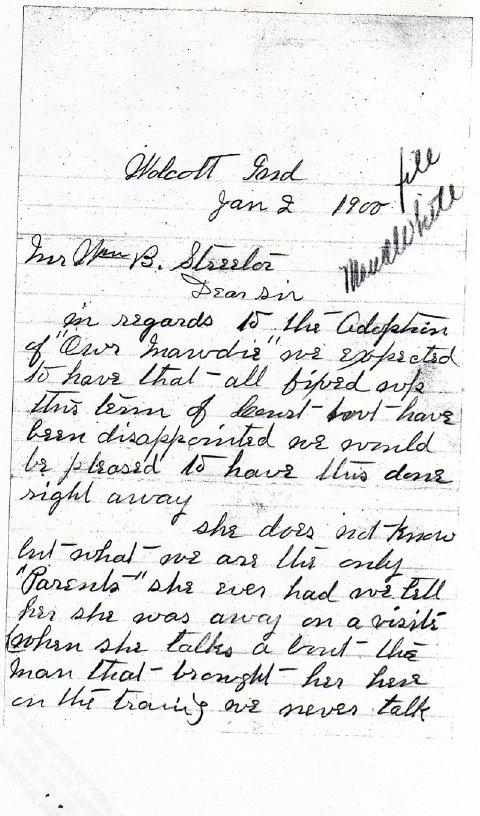 Wolcott Ind
Jan 2 1900
file
Maud White
Mr Wm B. Streeter
Dear Sir
in regards to the Adoption
of "Our Mawdie" we expected
to have that all fixed up
this term of Court but have
been disappointed we would
be pleased to have this done
right away
she does not know
but what we are the only
"Parents" she ever had we tell
her she was away on a visite
(when she talks a bout the
man that brought her here
on the train) we never talk